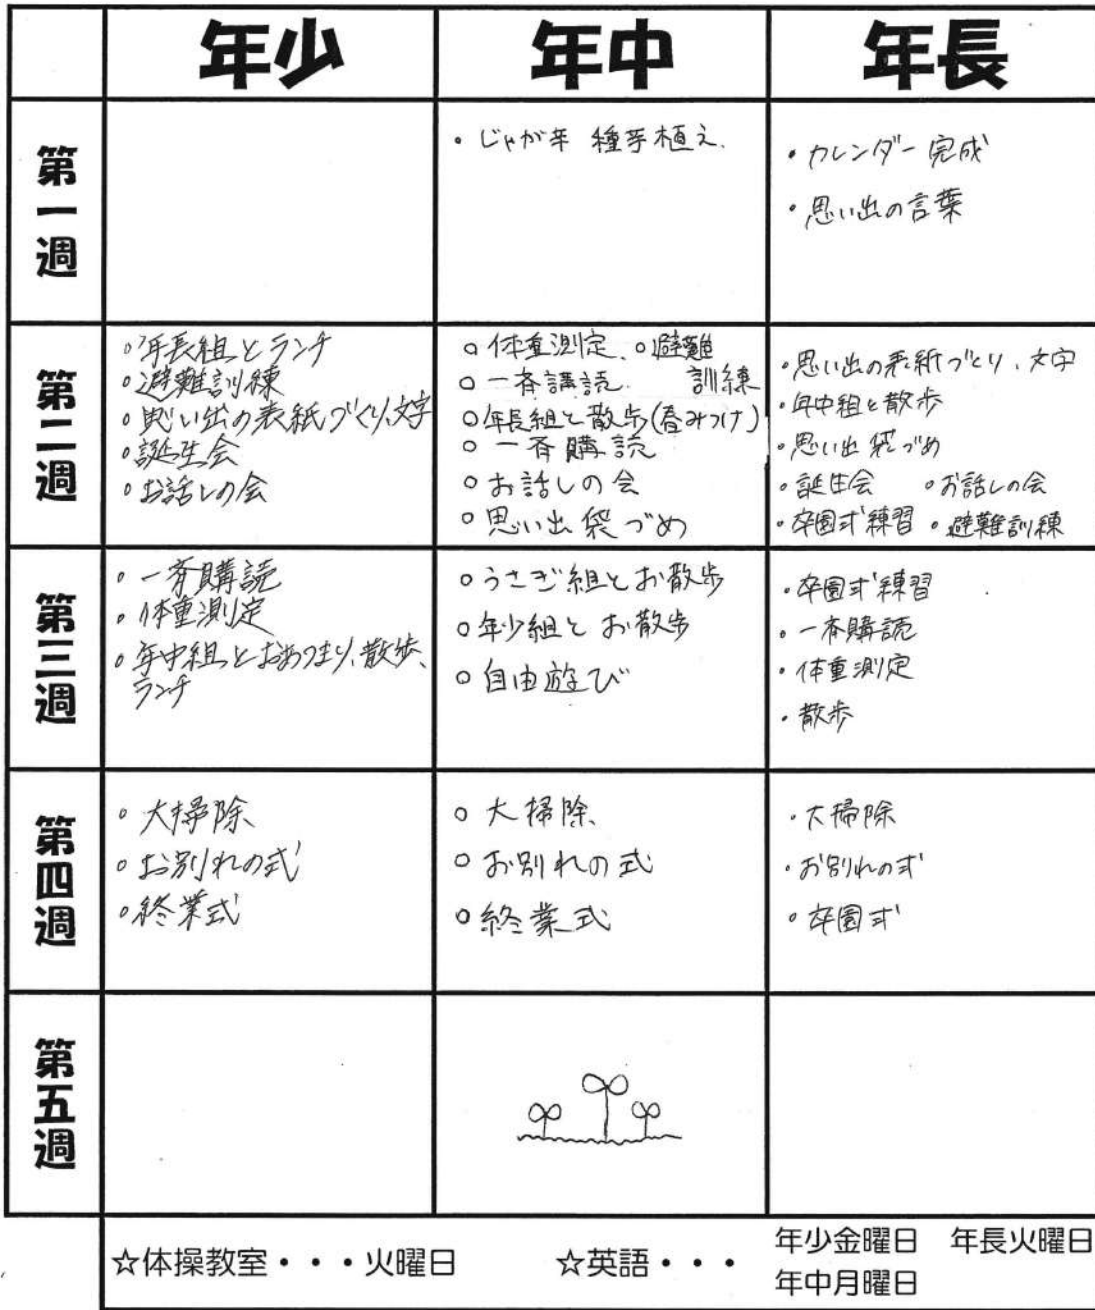 年少 年中 年長
第一週
・じゃが芋 種芋植え.
・カレンダー完成
・思い出の言葉
第二週
○年長組とランチ
○避難訓練
○思い出の表紙づくり、文字
○誕生会
○お話しの会
○体重測定、○避難
訓練
○一斉講読.
○年長組と散歩(春みつけ)
○一斉購読
○お話しの会
○思い出袋づめ
・思い出の表紙づくり、文字
・年中組と散歩
・思い出袋づめ
・誕生会 ○お話しの会
・卒園式練習 ・避難訓練
第三週
○一斉購読
・体重測定
○年中組とおあつまり、散歩、
ランチ
○うさぎ組とお散歩
○年少組とお散歩
○自由遊び
・卒園式練習
・一斉購読
・体重測定
・散歩
第四週
○大掃除
○お別れの式
○終業式
○大掃除
○お別れの式
○終業式
・大掃除
・お別れの式
・卒園式
第五週
☆体操教室・・・火曜日 ☆英語・・・ 年少金曜日 年長火曜日
年中月曜日